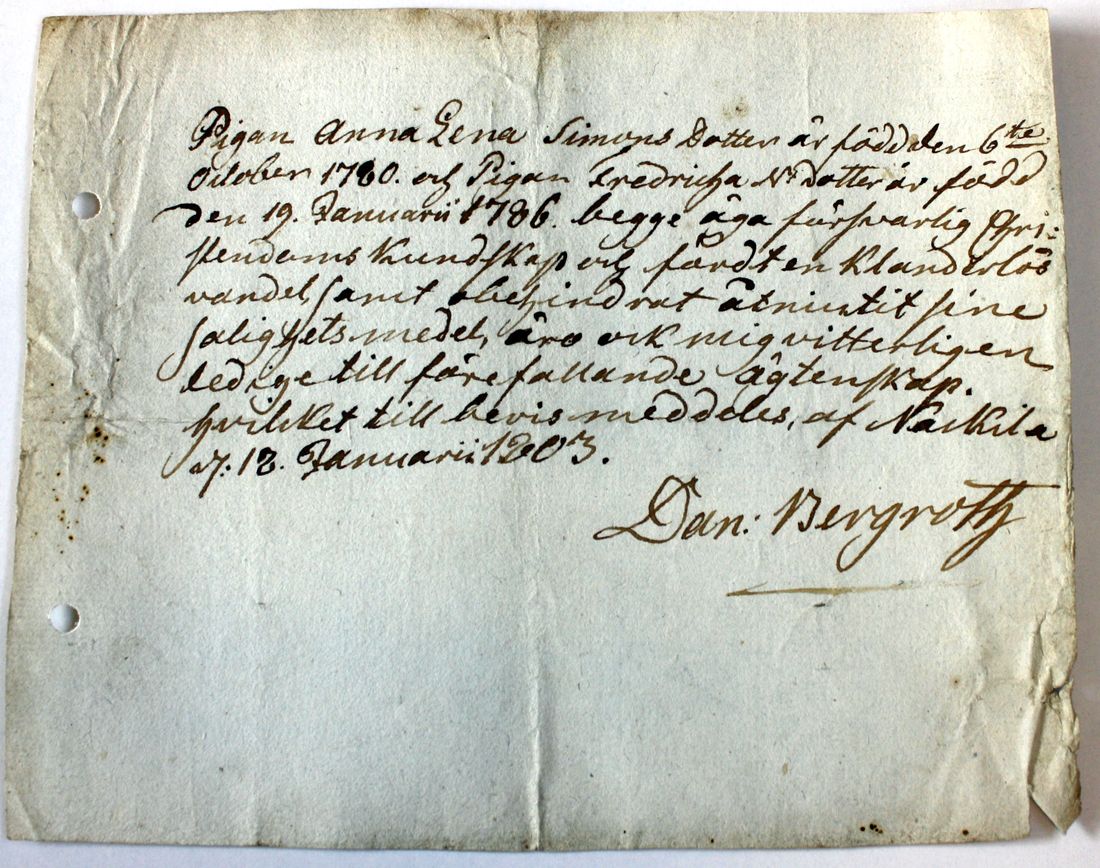 Pigan Anna Lena Simons Dotter är född den 6te
October 1780. och Pigan Fredricha Ns Dotter är född
den 19. Januarii 1786. begge äga försvarlig Chri-:
stendoms Kundskap och fördt en Klanderlös
vandel, samt obehindrat åtniutit sine
salighets medel, äro ock mig vitterligen
ledige till förefallande ägtenskap.
hvilket till bevis meddeles, af Naikila
d: 12. Januarii 1803.
Dan: Bergroth